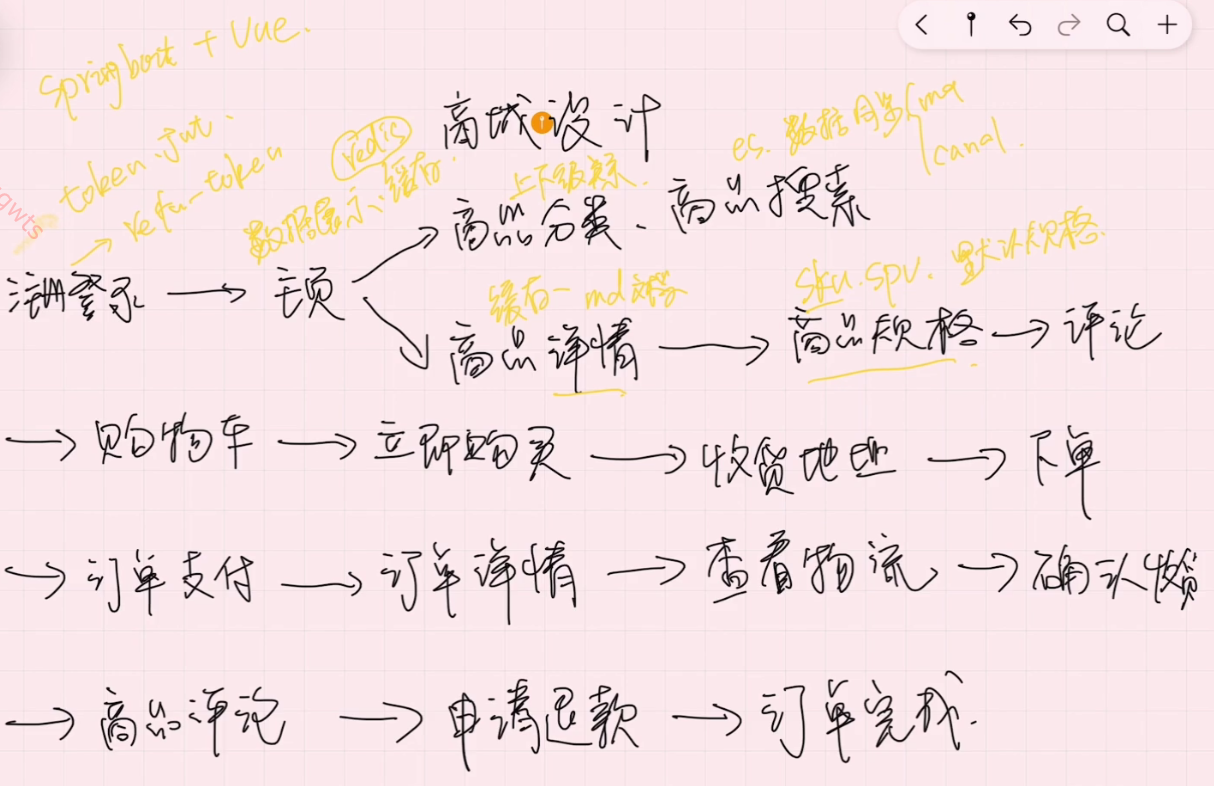 Springboot + Vue.
商城设计
token.jwt.
refre-token
redis
数据展示、缓存.
上下级关系.
es. 数据同步 mq
canal.
商品分类、商品搜索
注册登录 → 主页
缓存- md文档
sku. spu. 默认规格.
商品详情 → 商品规格 → 评论
→ 购物车 → 立即购买 → 收货地址 → 下单
→ 订单支付 → 订单详情 → 查看物流 → 确认收货
→ 商品评论 → 申请退款 → 订单完成.